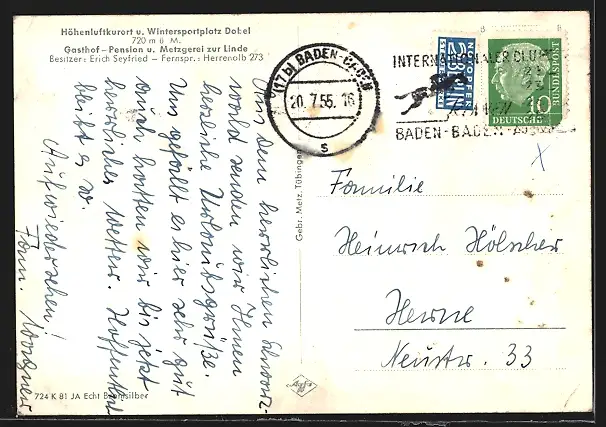 Höhenluftkurort u. Wintersportplatz Dobel
720 m ü. M.
Gasthof - Pension u. Metzgerei zur Linde
Besitzer: Erich Seyfried - Fernspr.: Herrenalb 273
Aus dem herrlichen Schwarz-
wald senden wir Ihnen
herzliche Urlaubsgrüße.
Uns gefällt es hier sehr gut
auch hatten wir bis jetzt
herrliches Wetter. Hoffentlich
bleibt es so.
Auf wiedersehen!
Fam.
724 K 81 JA Echt Bromsilber
Gebr. Metz, Tübingen
Agfa
(17b) BADEN-BADEN
20.7.55.16
s
NOTOPFER
2 BERLIN
STEUERMARKE
INTERNATIONALER CLUB
BADEN-BADEN
10
DEUTSCHE
BUNDESPOST
X
Familie
Heinrich Hölscher
Herne
Neustr. 33